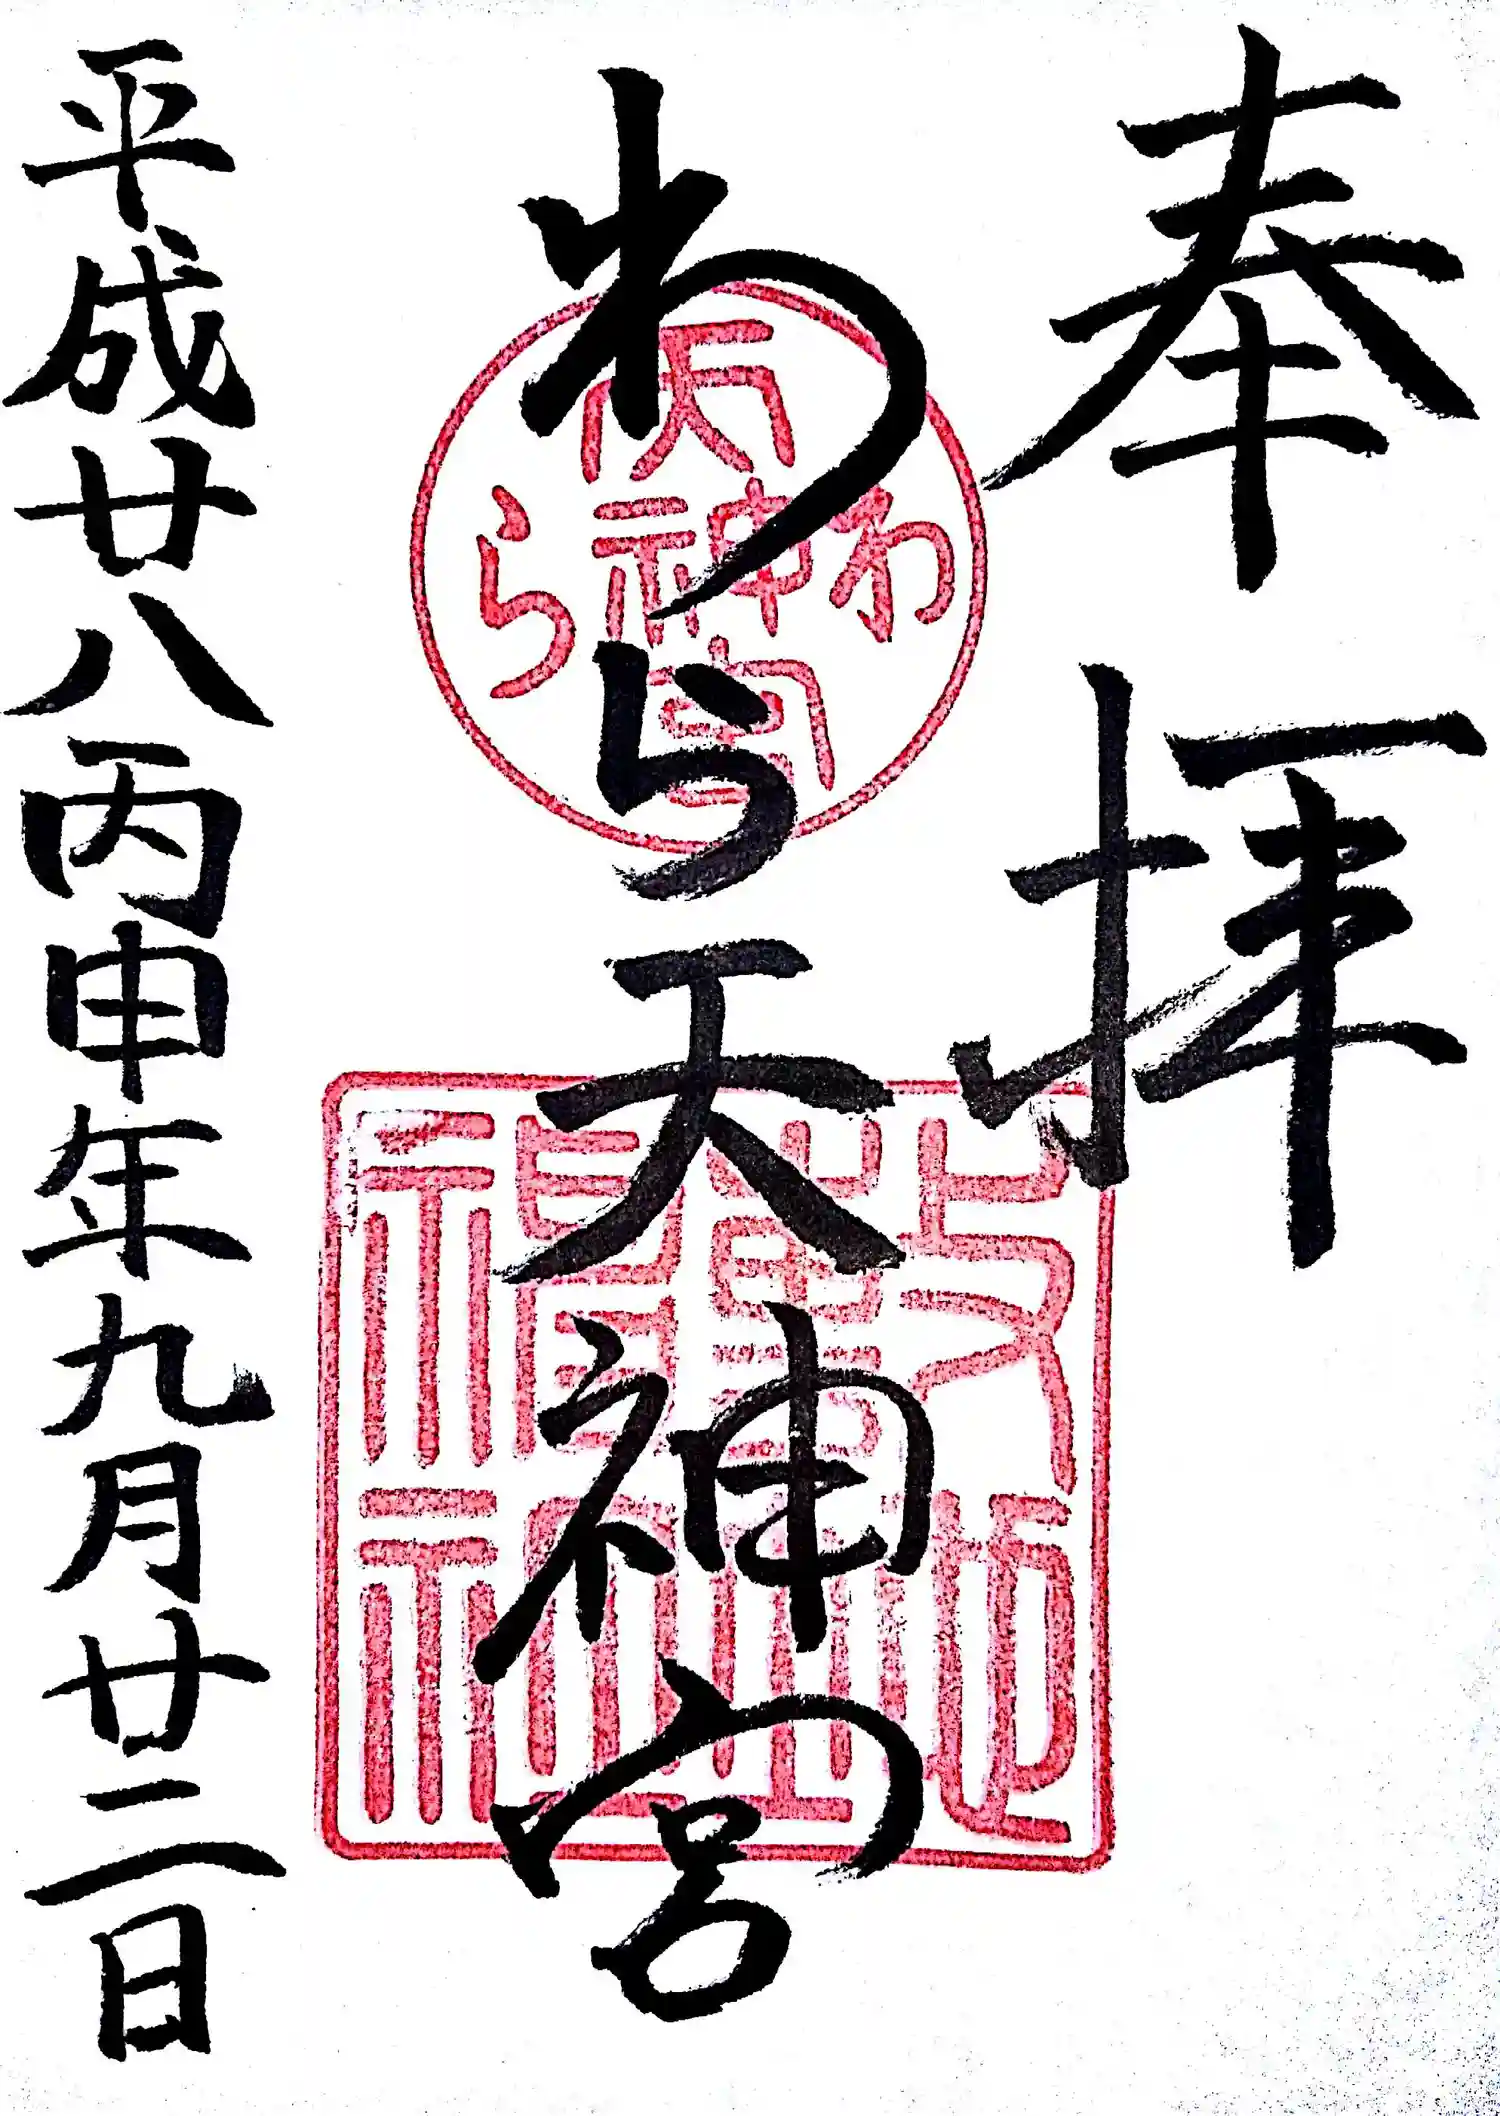 奉拝
わら天神宮
平成廿八丙申年九月廿二日
わら天神宮
敷地神社